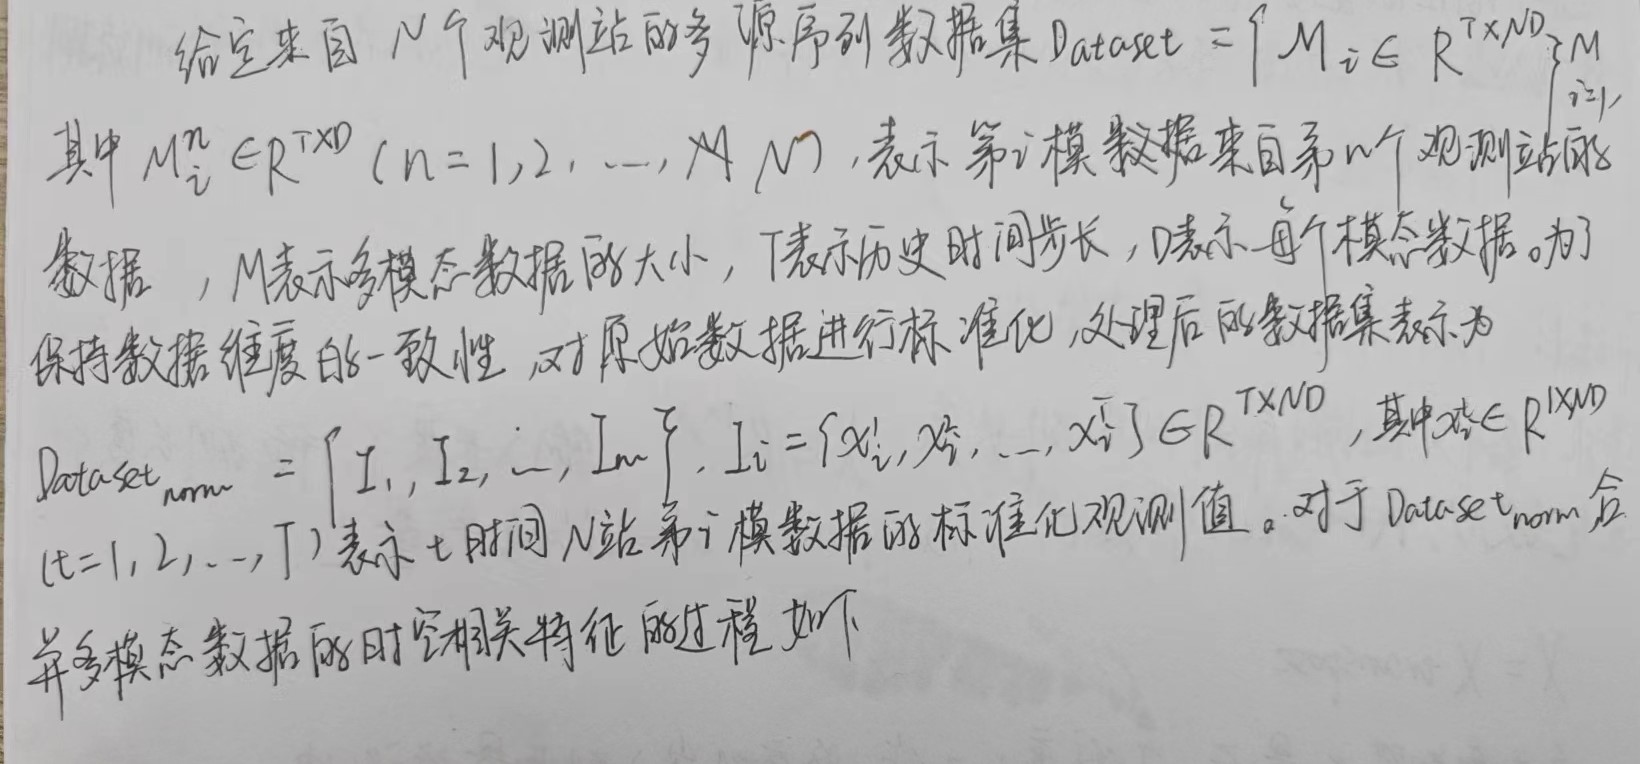 给定来自N个观测站的多源序列数据集Dataset = {M_i ∈ R^{T×ND}}_{i=1}^M,
其中 M_i^n ∈ R^{T×D} (n=1,2,...,N),表示第i模数据来自第n个观测站的
数据,M表示多模态数据的大小,T表示历史时间步长,D表示每个模态数据。为了
保持数据维度的一致性,对原始数据进行标准化,处理后的数据集表示为
Dataset_{norm} = {I_1, I_2, ..., I_m}, I_i = {x_i^1, x_i^2, ..., x_i^T} ∈ R^{T×ND},其中x_i^t ∈ R^{1×ND}
(t=1,2,...,T)表示t时间N站第i模数据的标准化观测值。对于Dataset_{norm}合
并多模态数据的时空相关特征的过程如下